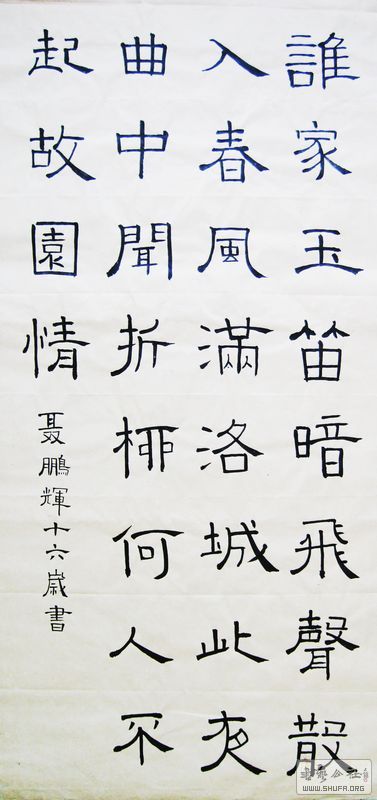 誰家玉笛暗飛聲散
入春風滿洛城此夜
曲中聞折柳何人不
起故園情
聶鵬輝十六歲書
WWW.SHUFA.ORG